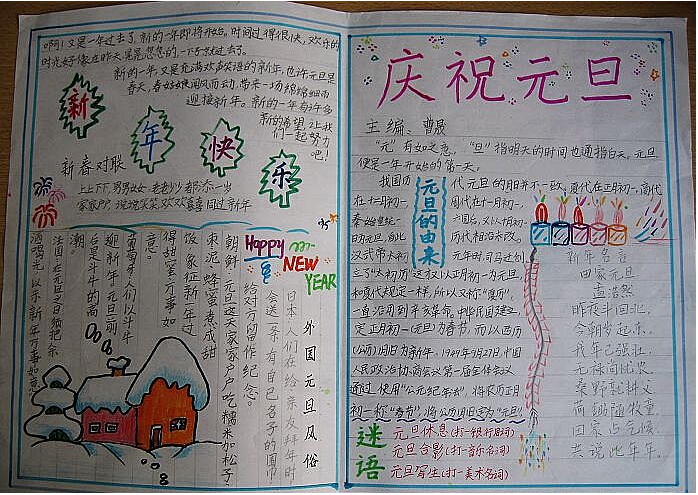 啊！又是一年过去了，新的一年即将开始。时间过得很快，欢乐的
时光好像在昨天，总是悄悄的，一下子就过去了。
新的一年，又是充满欢声笑语的新年，也许元旦是
春天，春姑娘闻风而动，带来一场绵绵细雨
迎接新年。新的一年有许多
新的希望，让我
们一起努力
吧！
新年快乐
新春对联
上上下下，男男女女，老老少少都添一岁
家家户户，说说笑笑，欢欢喜喜同过新年
Happy
NEW
YEAR
外国元旦风俗
日本：人们在给亲友拜年时
会送一条有自己名子的围巾
给对方留作纪念。
朝鲜：元旦这天家家户户吃糯米加松子
枣泥、蜂蜜煮成甜
饭，象征新年过
得甜蜜，万事如
意。
葡萄牙：人们以斗牛
迎新年。元旦前
台是斗牛的高
潮
法国：在元旦之日须把余
酒喝光，以示新年万事如意。
庆祝元旦
主编：曹晟
“元”有始之意，“旦”指明天的时间也通指白天。元旦
便是一年开始的第一天。
元旦的由来
我国历
代元旦的月日并不一致。夏代在正月初一，商代
在十二月初一，
周代在十一月初一，
秦始皇统一
六国后，又以十月初一
为元旦，自此
历代相沿未改。
汉武帝太初
元年时，司马迁创
立了“太初历”，这才以正月初一为元旦，
和夏代规定一样，所以又称“夏历”，
一直沿用到辛亥革命。中华民国建立，
定正月初一(元旦)为春节，而以西历
(公历)1月1日为新年。1949年9月27日，中国
人民政治协商会议第一届全体会议
通过使用“公元纪年法”，将农历正月
初一称“春节”，将公历1月1日定为“元旦”。
新年名言
田家元旦
孟浩然
昨夜斗回北，
今朝岁起东，
我年已强壮，
无禄尚忧农。
桑野就耕父，
荷锄随牧童，
田家占气候，
共说此年丰。
谜语
元旦休息(打一银行用词)
元旦合影(打一音乐名词)
元旦写生(打一美术名词)